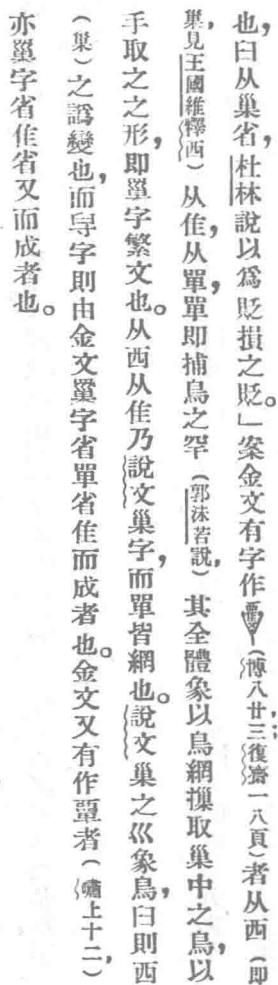 也，臼从巢省，杜林說以爲貶損之貶。」案金文有字作（博八廿三；復齋一八頁）者从西（即
巢，見王國維釋西）从隹，从單，單即捕鳥之罕（郭沫若說，）其全體象以鳥網㩇取巢中之鳥，以
手取之之形，即𤲷字繁文也。从西从隹乃說文巢字，而單皆網也。說文巢之巛象鳥，臼則西
（巢）之譌變也，而㝵字則由金文字省單省隹而成者也。金文又有作者（嘯上十二，）
亦字省隹省又而成者也。